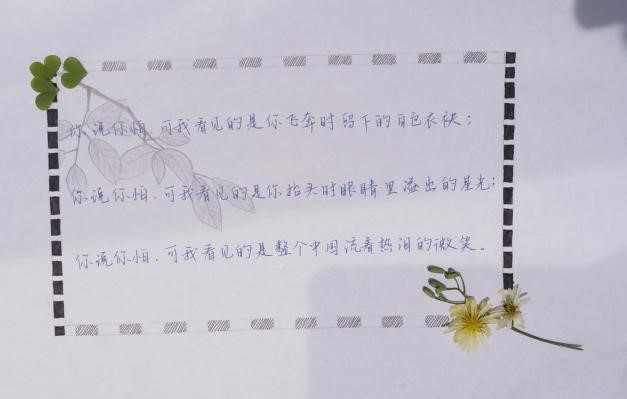 你说你怕,可我看见的是你飞奔时留下的白色衣袂;
你说你怕,可我看见的是你抬头时眼睛里溢出的星光;
你说你怕,可我看见的是整个中国流着热泪的微笑。